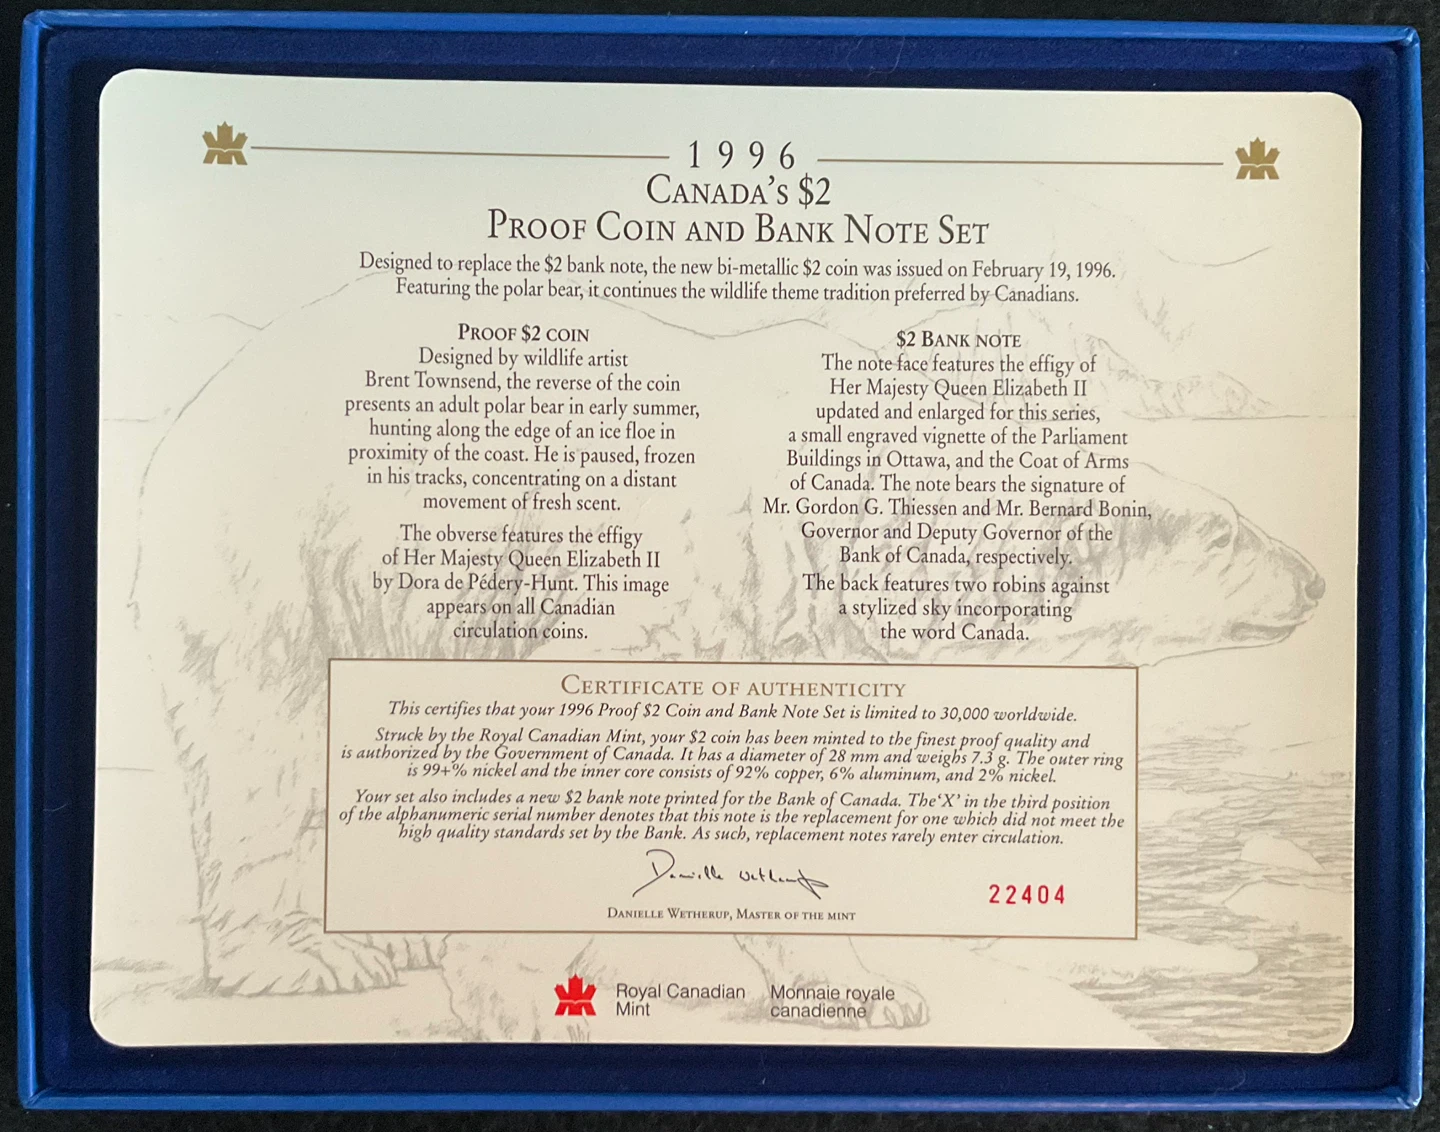 1996
CANADA'S $2
PROOF COIN AND BANK NOTE SET
Designed to replace the $2 bank note, the new bi-metallic $2 coin was issued on February 19, 1996.
Featuring the polar bear, it continues the wildlife theme tradition preferred by Canadians.
PROOF $2 COIN
Designed by wildlife artist
Brent Townsend, the reverse of the coin
presents an adult polar bear in early summer,
hunting along the edge of an ice floe in
proximity of the coast. He is paused, frozen
in his tracks, concentrating on a distant
movement of fresh scent.
The obverse features the effigy
of Her Majesty Queen Elizabeth II
by Dora de Pédery-Hunt. This image
appears on all Canadian
circulation coins.
$2 BANK NOTE
The note face features the effigy of
Her Majesty Queen Elizabeth II
updated and enlarged for this series,
a small engraved vignette of the Parliament
Buildings in Ottawa, and the Coat of Arms
of Canada. The note bears the signature of
Mr. Gordon G. Thiessen and Mr. Bernard Bonin,
Governor and Deputy Governor of the
Bank of Canada, respectively.
The back features two robins against
a stylized sky incorporating
the word Canada.
CERTIFICATE OF AUTHENTICITY
This certifies that your 1996 Proof $2 Coin and Bank Note Set is limited to 30,000 worldwide.
Struck by the Royal Canadian Mint, your $2 coin has been minted to the finest proof quality and
is authorized by the Government of Canada. It has a diameter of 28 mm and weighs 7.3 g. The outer ring
is 99+% nickel and the inner core consists of 92% copper, 6% aluminum, and 2% nickel.
Your set also includes a new $2 bank note printed for the Bank of Canada. The 'X' in the third position
of the alphanumeric serial number denotes that this note is the replacement for one which did not meet the
high quality standards set by the Bank. As such, replacement notes rarely enter circulation.
Danielle Wetherup
DANIELLE WETHERUP, MASTER OF THE MINT
22404
Royal Canadian
Mint
Monnaie royale
canadienne